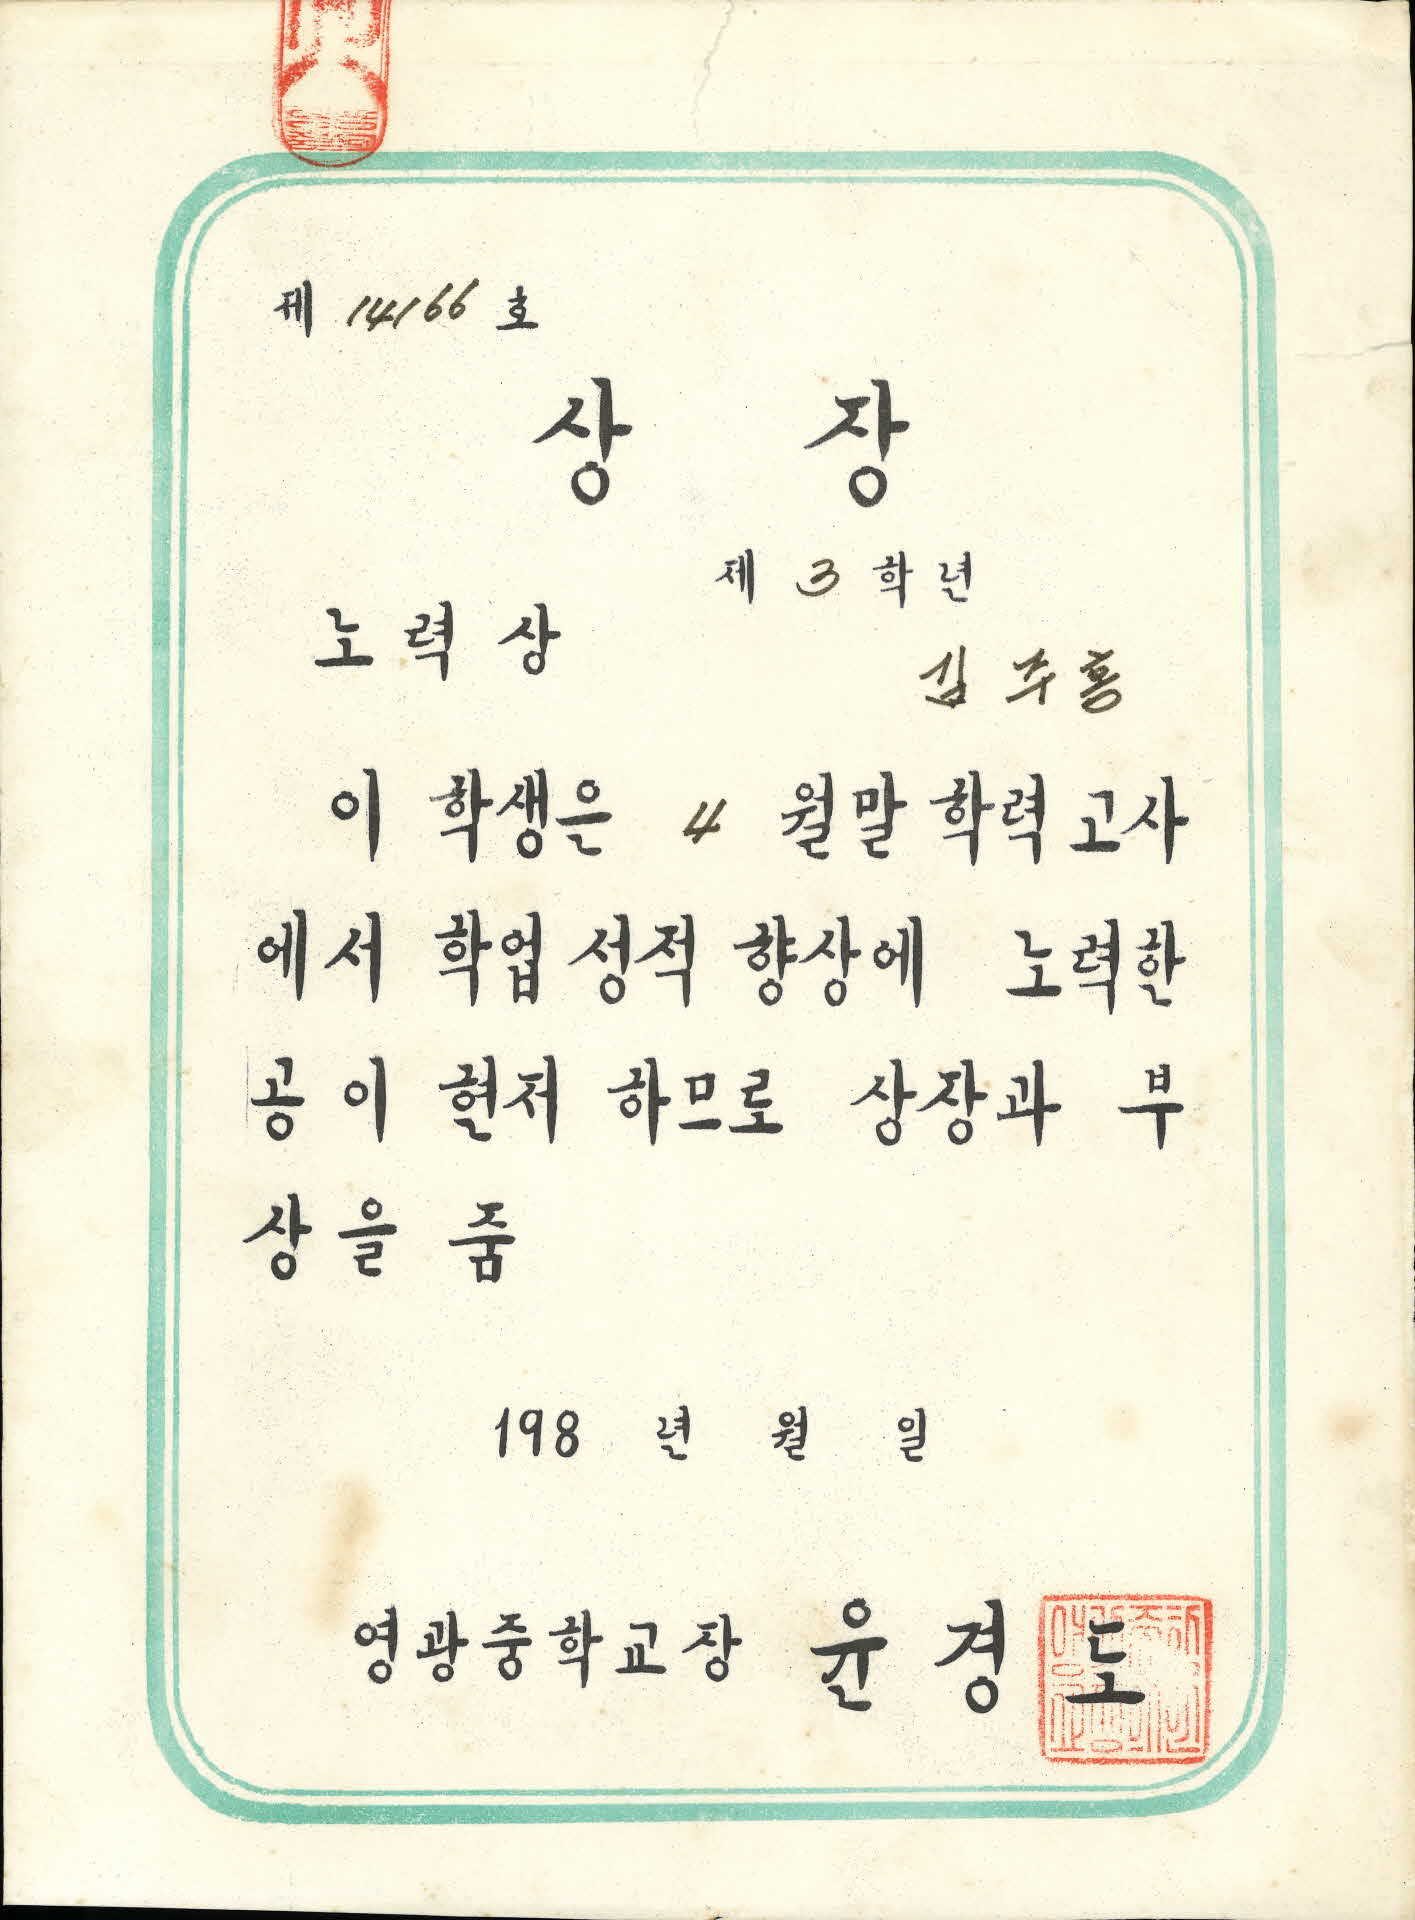 제 14166 호
상 장
제 3 학년
노력상
김주홍
이 학생은 4 월말 학력고사
에서 학업성적 향상에 노력한
공이 현저 하므로 상장과 부
상을 줌
198 년 월 일
영광중학교장 윤경도